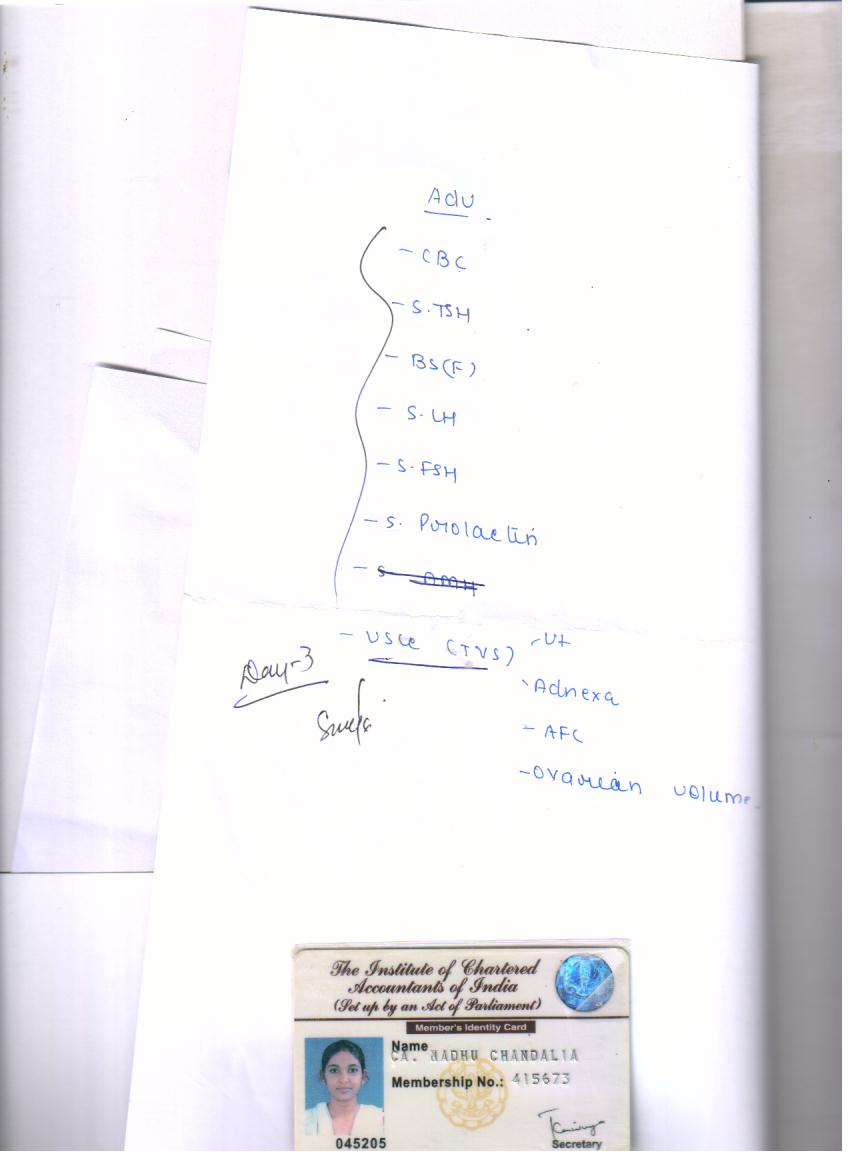 Adv.
- CBC
- S. TSH
- BS(F)
- S. LH
- S. FSH
- S. Prolactin
- S. AMH
- USG (TVS) - Ut
- Adnexa
- AFC
- Ovarian volume
Day-3
The Institute of Chartered
Accountants of India
(Set up by an Act of Parliament)
Member's Identity Card
Name
CA. MADHU CHANDALIA
Membership No.: 415673
045205
Secretary